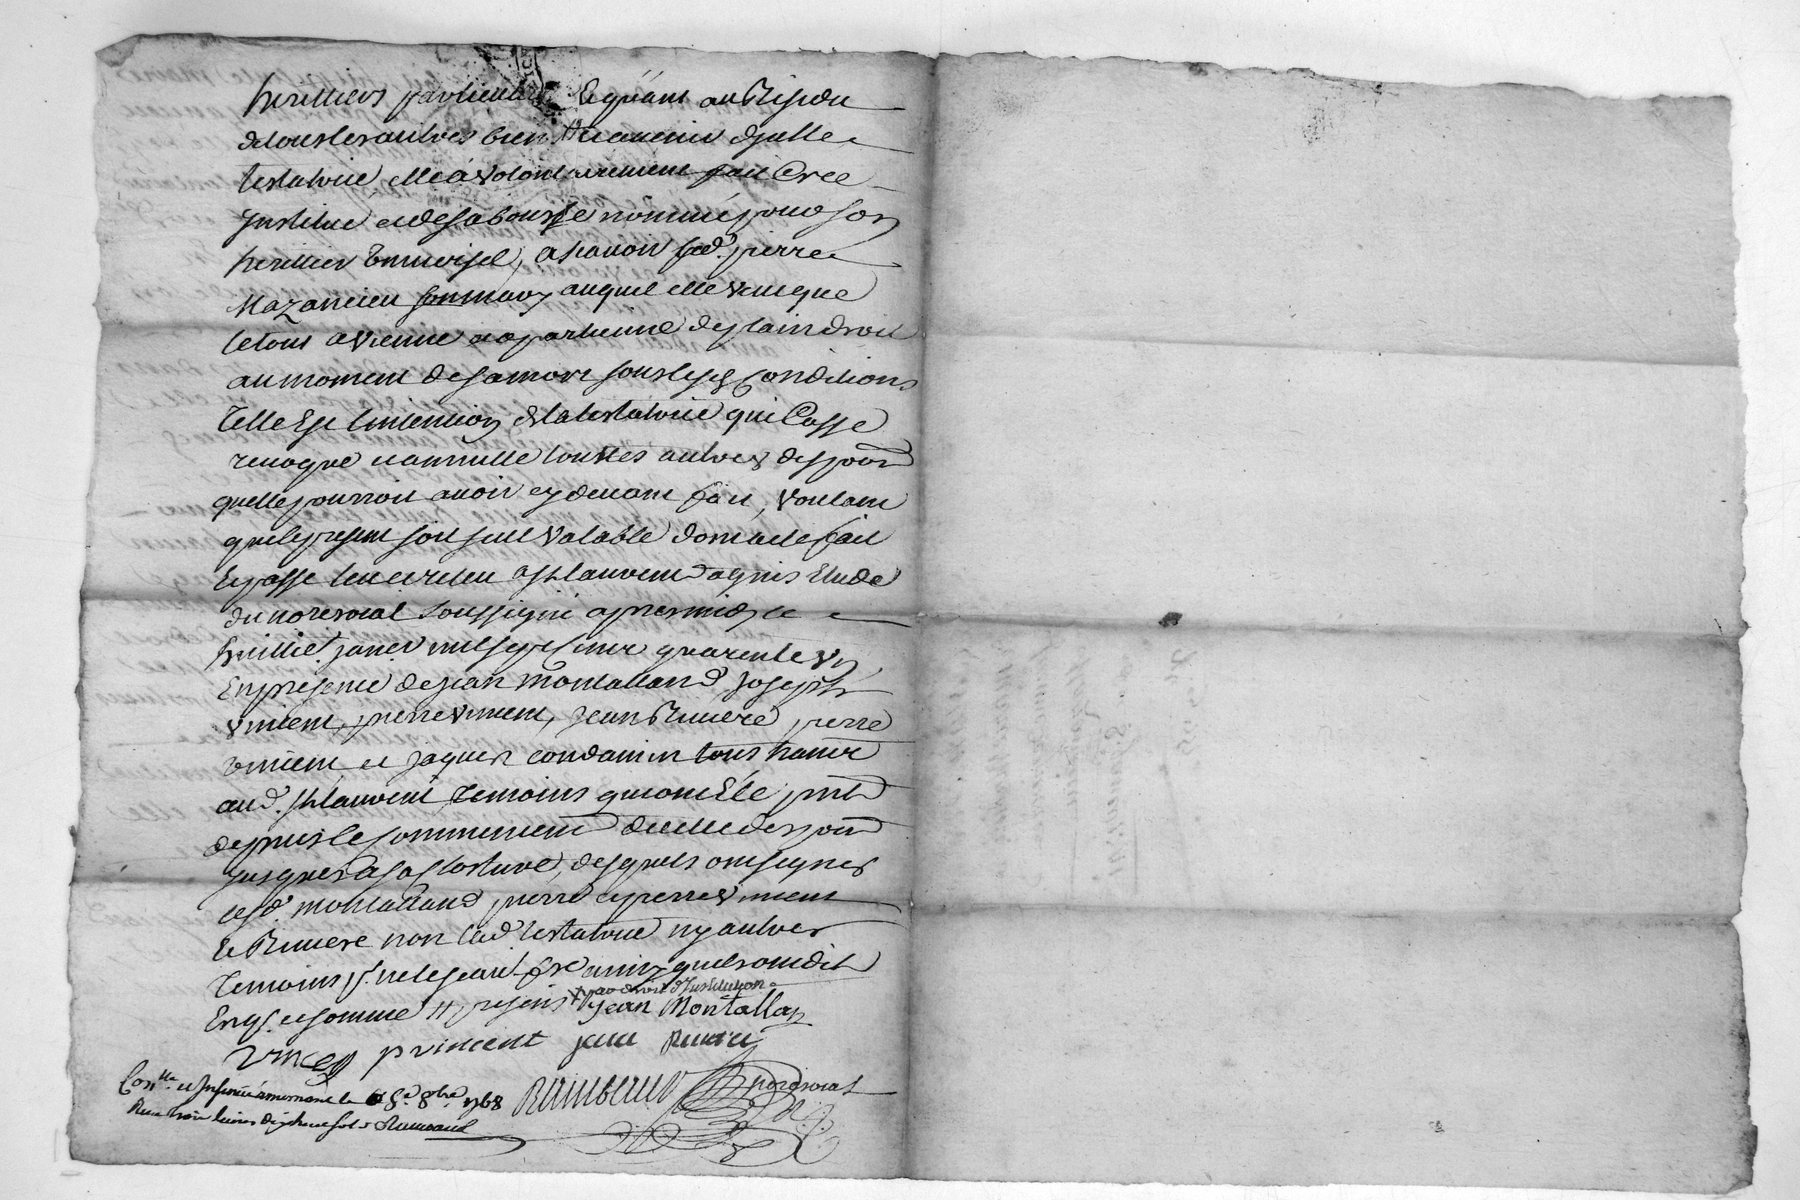 heritiers particuliers Et quant au Residu
de tous les autres biens et avenir dicelle
testatrice elle a volontairement fait Crée
Institue et de sa bouche nommé pour son
heritier universel, a scavoir led. pierre
Mazancieu son mary auquel elle veut que
le tout avienne et apartienne de plain droit
au moment de sa mort sous lesd Conditions
Telle Est lintention de la testatrice qui Casse
revoque et annulle touttes autres dispoõn
quelle pourroit avoir cy devant fait, voulant
que le present soit seul valable dont acte fait
Et passé leu et releu a St laurent d'agnis Etude
du nore roial soussigné apres midy le
huittie. janer mil sept cent quarente
En presence de jean montalland joseph
vincent, pierre vincent, jean Riviere pierre
vincent et jaques condamin tous habit
aud. St laurent Temoins qui ont Eté pnts
depuis le commencement de cette dispoõn
jusques a sa closture, desquels ont signés
lesd. montalland pierre et pierre vincent
et Riviere non lad testatrice ny autres
Temoins pr. ne le scavoir quils ont dit
Enqs. et sommé presens par droit d'Institution
jean Montallan
vincen p vincent jean Riviere
Rambaud nore roial
Conlle et Insinué a mornant le 8bre 1768
Reçu trois livres Rambaud